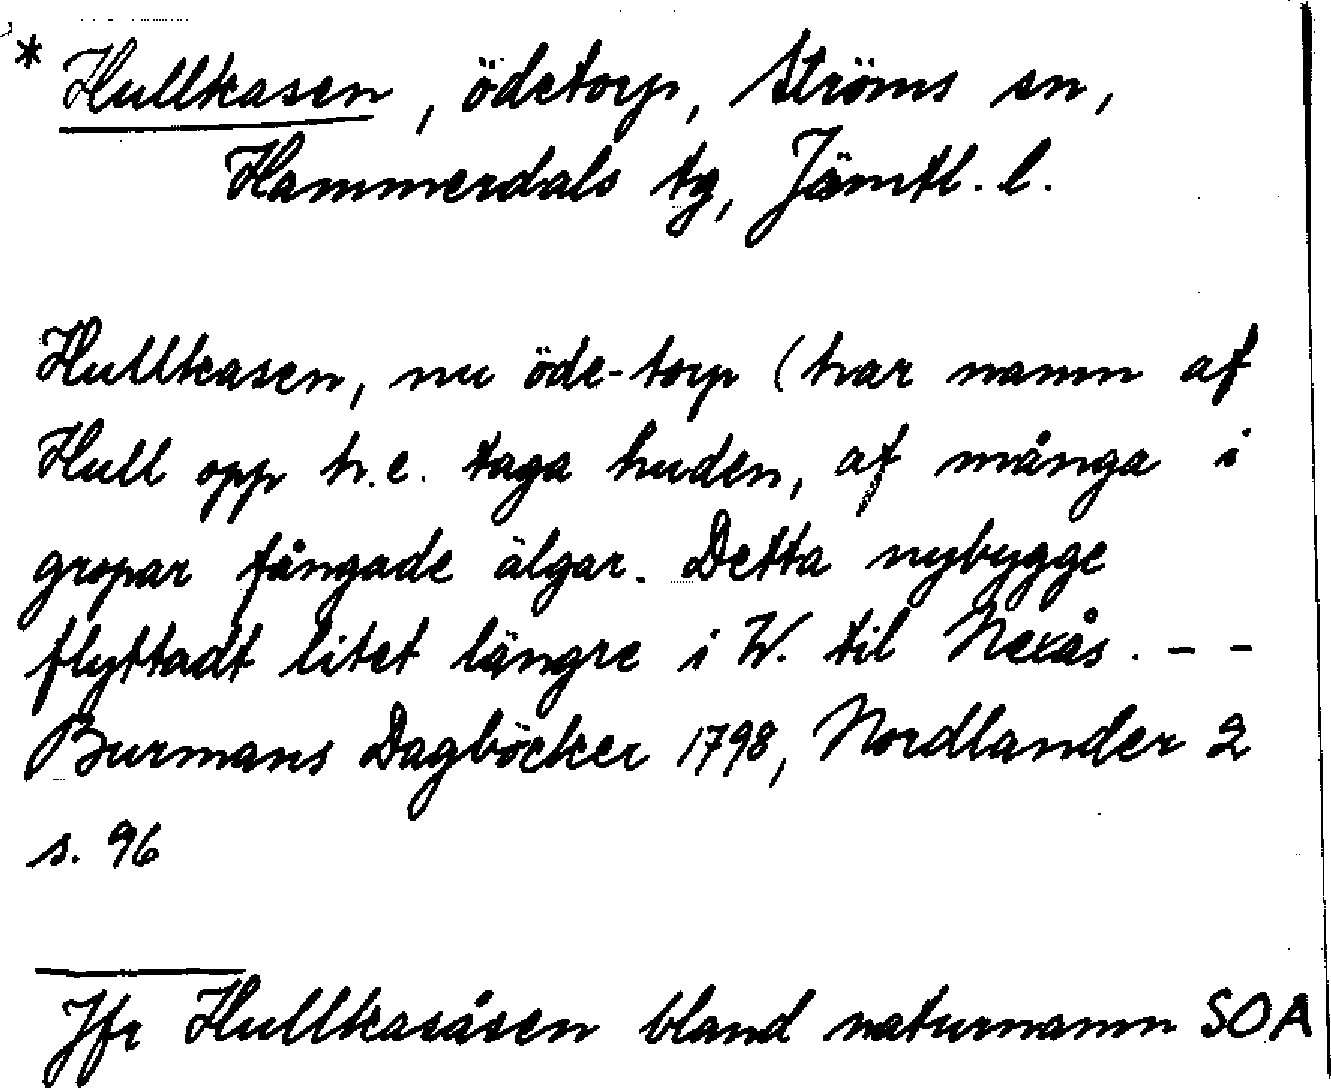 * Hullkasen, ödetorp, Ströms sn,
Hammerdals tg, Jämtl. l.
Hullkasen, nu öde-torp (har namn af
Hull opp h.e. taga huden, af många i
gropar fångade älgar. Detta nybygge
flyttadt litet längre i W. til Nexås. - -
Burmans Dagböcker 1798, Nordlander 2
s. 96
Jfr Hullkasåsen bland naturnamn SOA